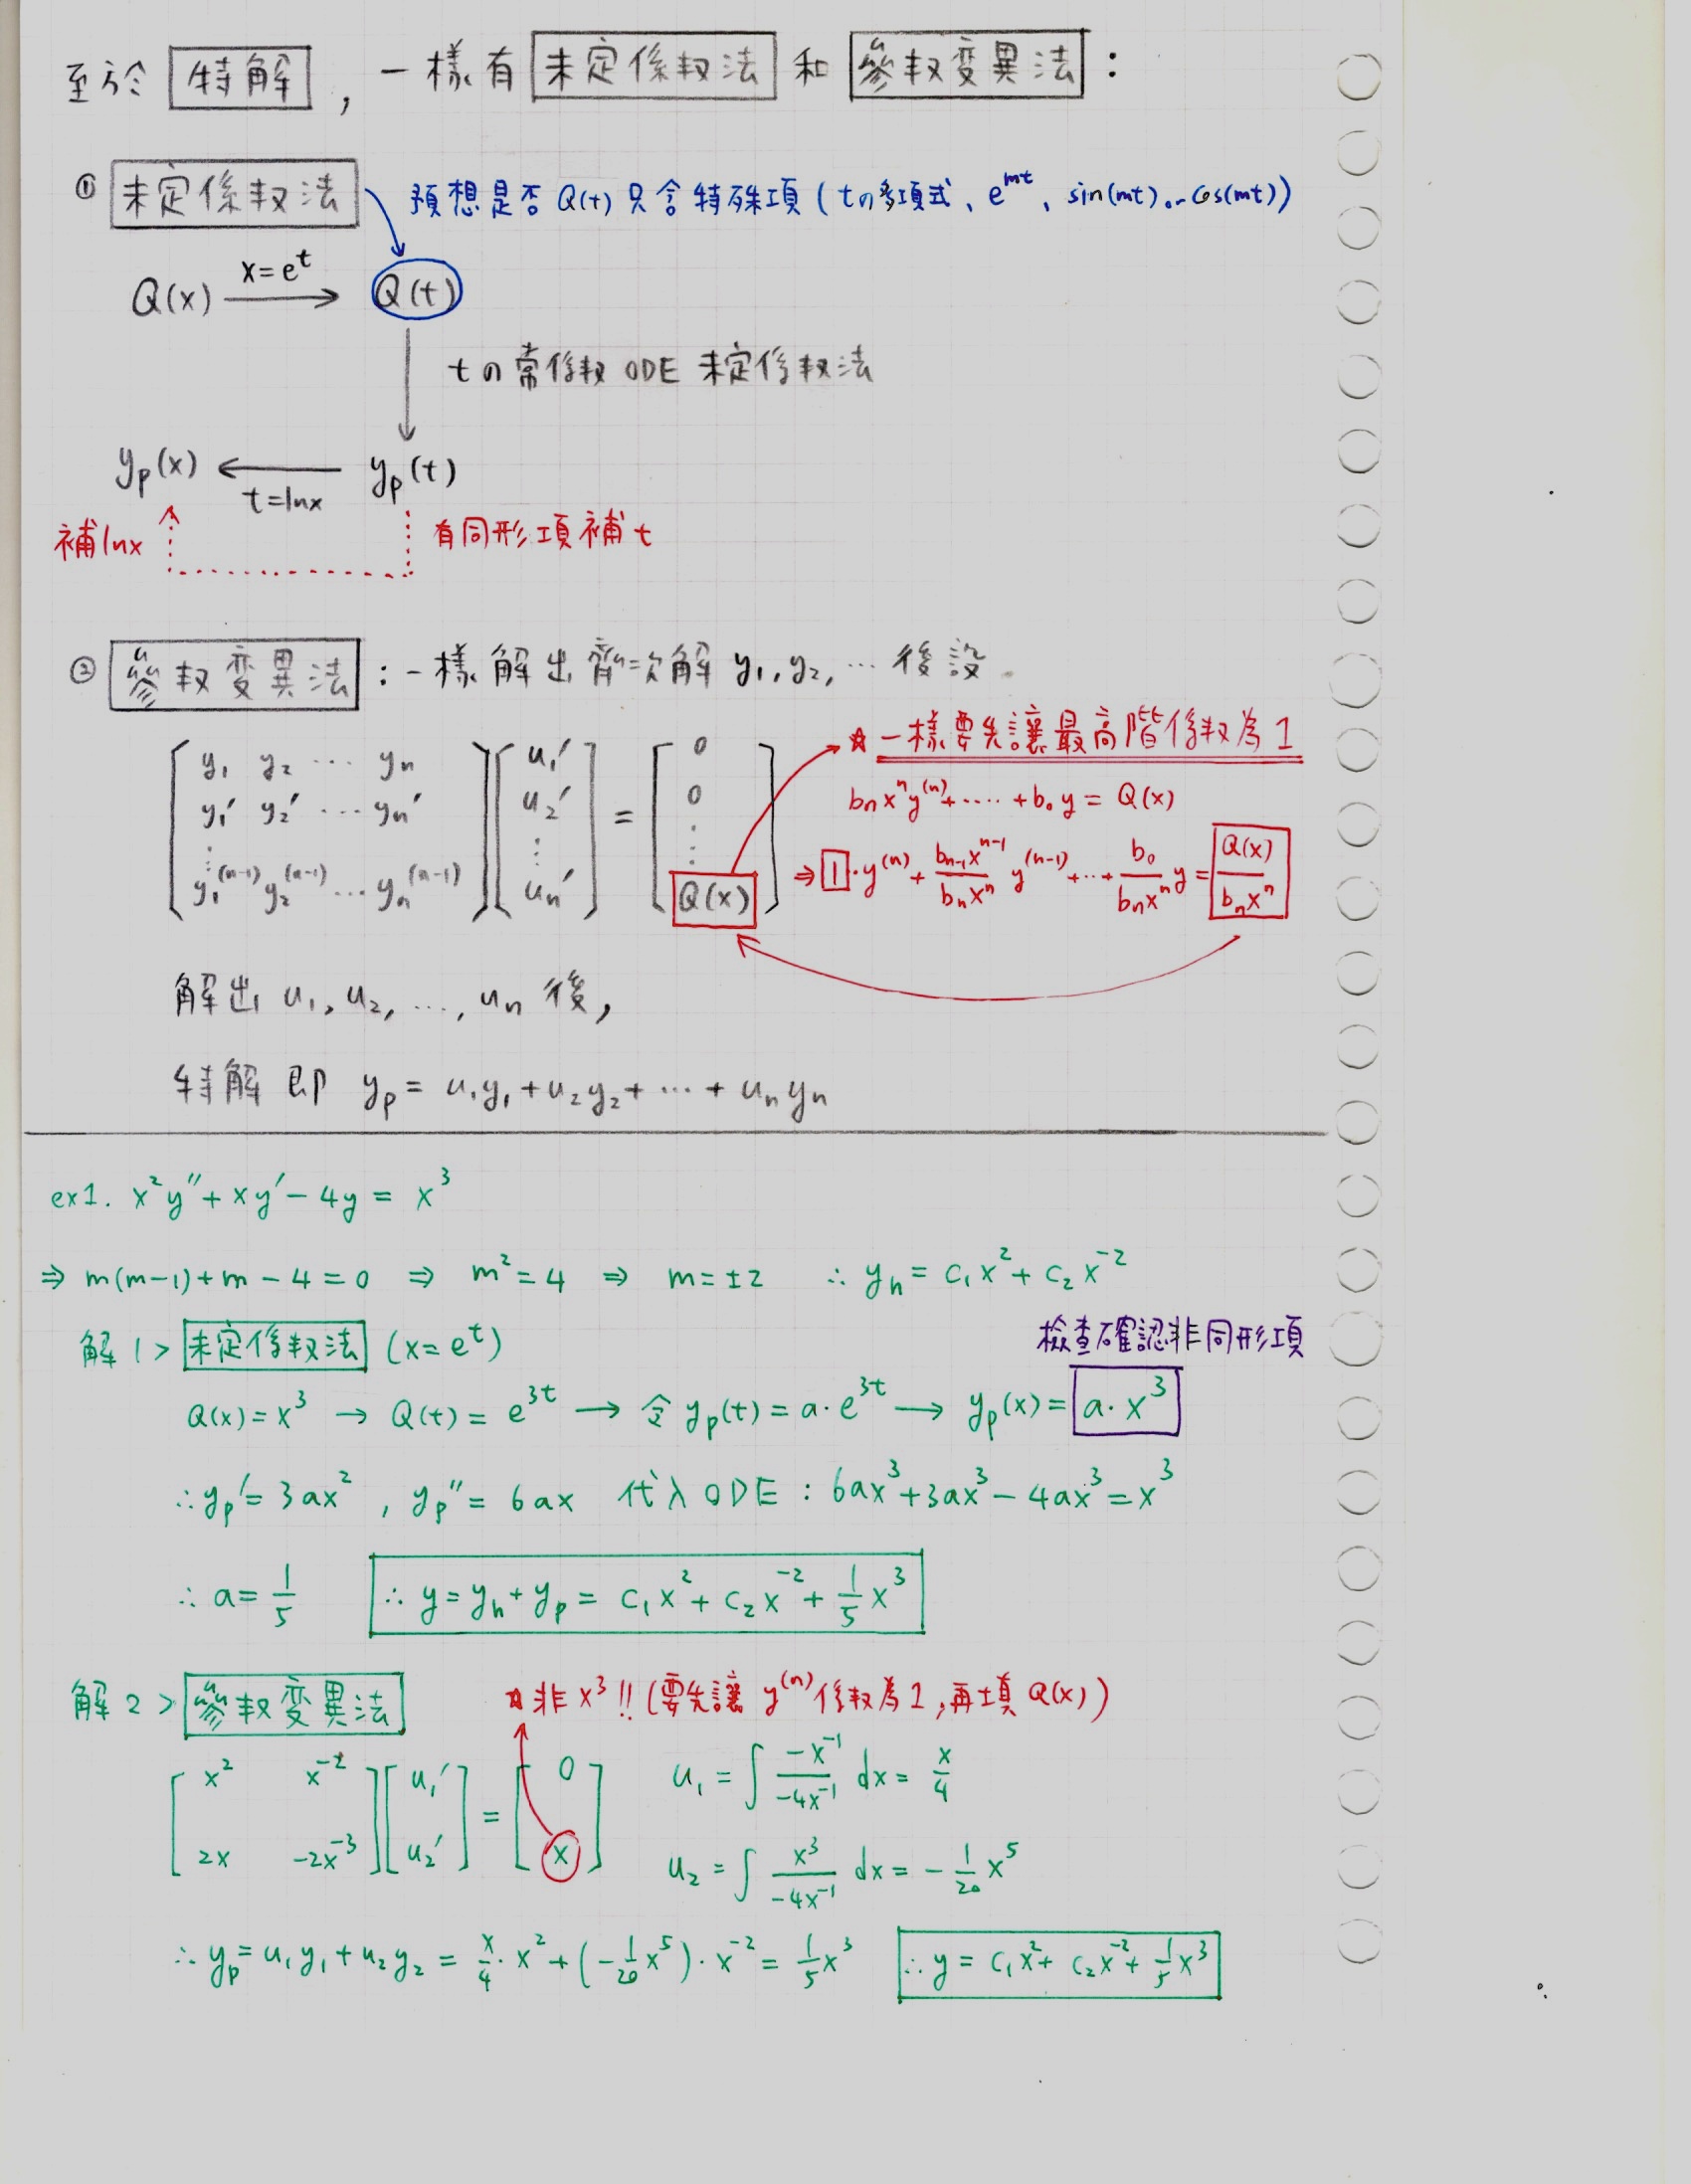 至於 特解 , 一樣有 未定係数法 和 參数变異法 :
① 未定係数法 預想是否 Q(t) 只含特殊項 ( tの多項式、e^{mt}、sin(mt) or cos(mt))
Q(x) x=e^t → Q(t)
tの常係数 ODE 未定係数法
y_p(x) ← t=lnx y_p(t)
補lnx 有同形項補 t
② 參数变異法 : 一樣解出齊次解 y_1, y_2, … 後設
☆ 一樣要先讓最高階係数為1
[y_1 y_2 … y_n; y_1' y_2' … y_n'; ⋮ y_1^{(n-1)} y_2^{(n-1)} … y_n^{(n-1)}] [u_1'; u_2'; ⋮ u_n'] = [0; 0; ⋮ Q(x)]
b_n x^n y^{(n)} + ‥‥ + b_0 y = Q(x)
⇒ 1·y^{(n)} + \frac{b_{n-1}x^{n-1}}{b_n x^n} y^{(n-1)} + … + \frac{b_0}{b_n x^n} y = \frac{Q(x)}{b_n x^n}
解出 u_1, u_2, …, u_n 後,
特解即 y_p = u_1y_1 + u_2y_2 + … + u_n y_n
ex1. x^2y'' + xy' - 4y = x^3
⇒ m(m-1)+m-4=0 ⇒ m^2=4 ⇒ m=±2 ∴ y_h = c_1x^2 + c_2x^{-2}
解1> 未定係数法 (x=e^t) 檢查確認非同形項
Q(x)=x^3 → Q(t)=e^{3t} → 令 y_p(t)=a·e^{3t} → y_p(x)=a·x^3
∴ y_p'=3ax^2 , y_p''=6ax 代入ODE : 6ax^3+3ax^3-4ax^3=x^3
∴ a=\frac{1}{5} ∴ y=y_h+y_p = c_1x^2+c_2x^{-2}+\frac{1}{5}x^3
解2> 參数变異法 ☆非 x^3 !! (要先讓 y^{(n)} 係数為1,再填 Q(x))
[x^2 x^{-2}; 2x -2x^{-3}] [u_1'; u_2'] = [0; x]
u_1 = ∫ \frac{-x^{-1}}{-4x^{-1}} dx = \frac{x}{4}
u_2 = ∫ \frac{x^3}{-4x^{-1}} dx = -\frac{1}{20}x^5
∴ y_p = u_1y_1+u_2y_2 = \frac{x}{4}·x^2+(-\frac{1}{20}x^5)·x^{-2} = \frac{1}{5}x^3 ∴ y = c_1x^2+c_2x^{-2}+\frac{1}{5}x^3